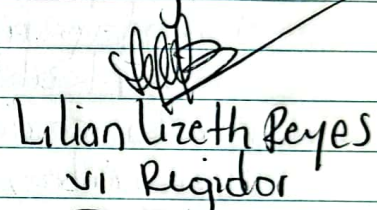 Lilian Lizeth Reyes
VI Regidor